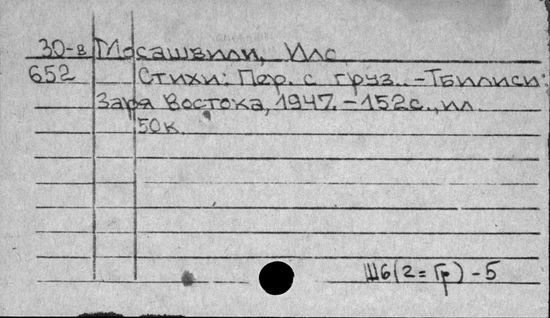 30-в Мосашвили, Ило
652 Стихи: Пер. с груз. -Тбилиси:
Заря Востока, 1947. -152с., ил.
50к.
Ш6(2=Гр)-5